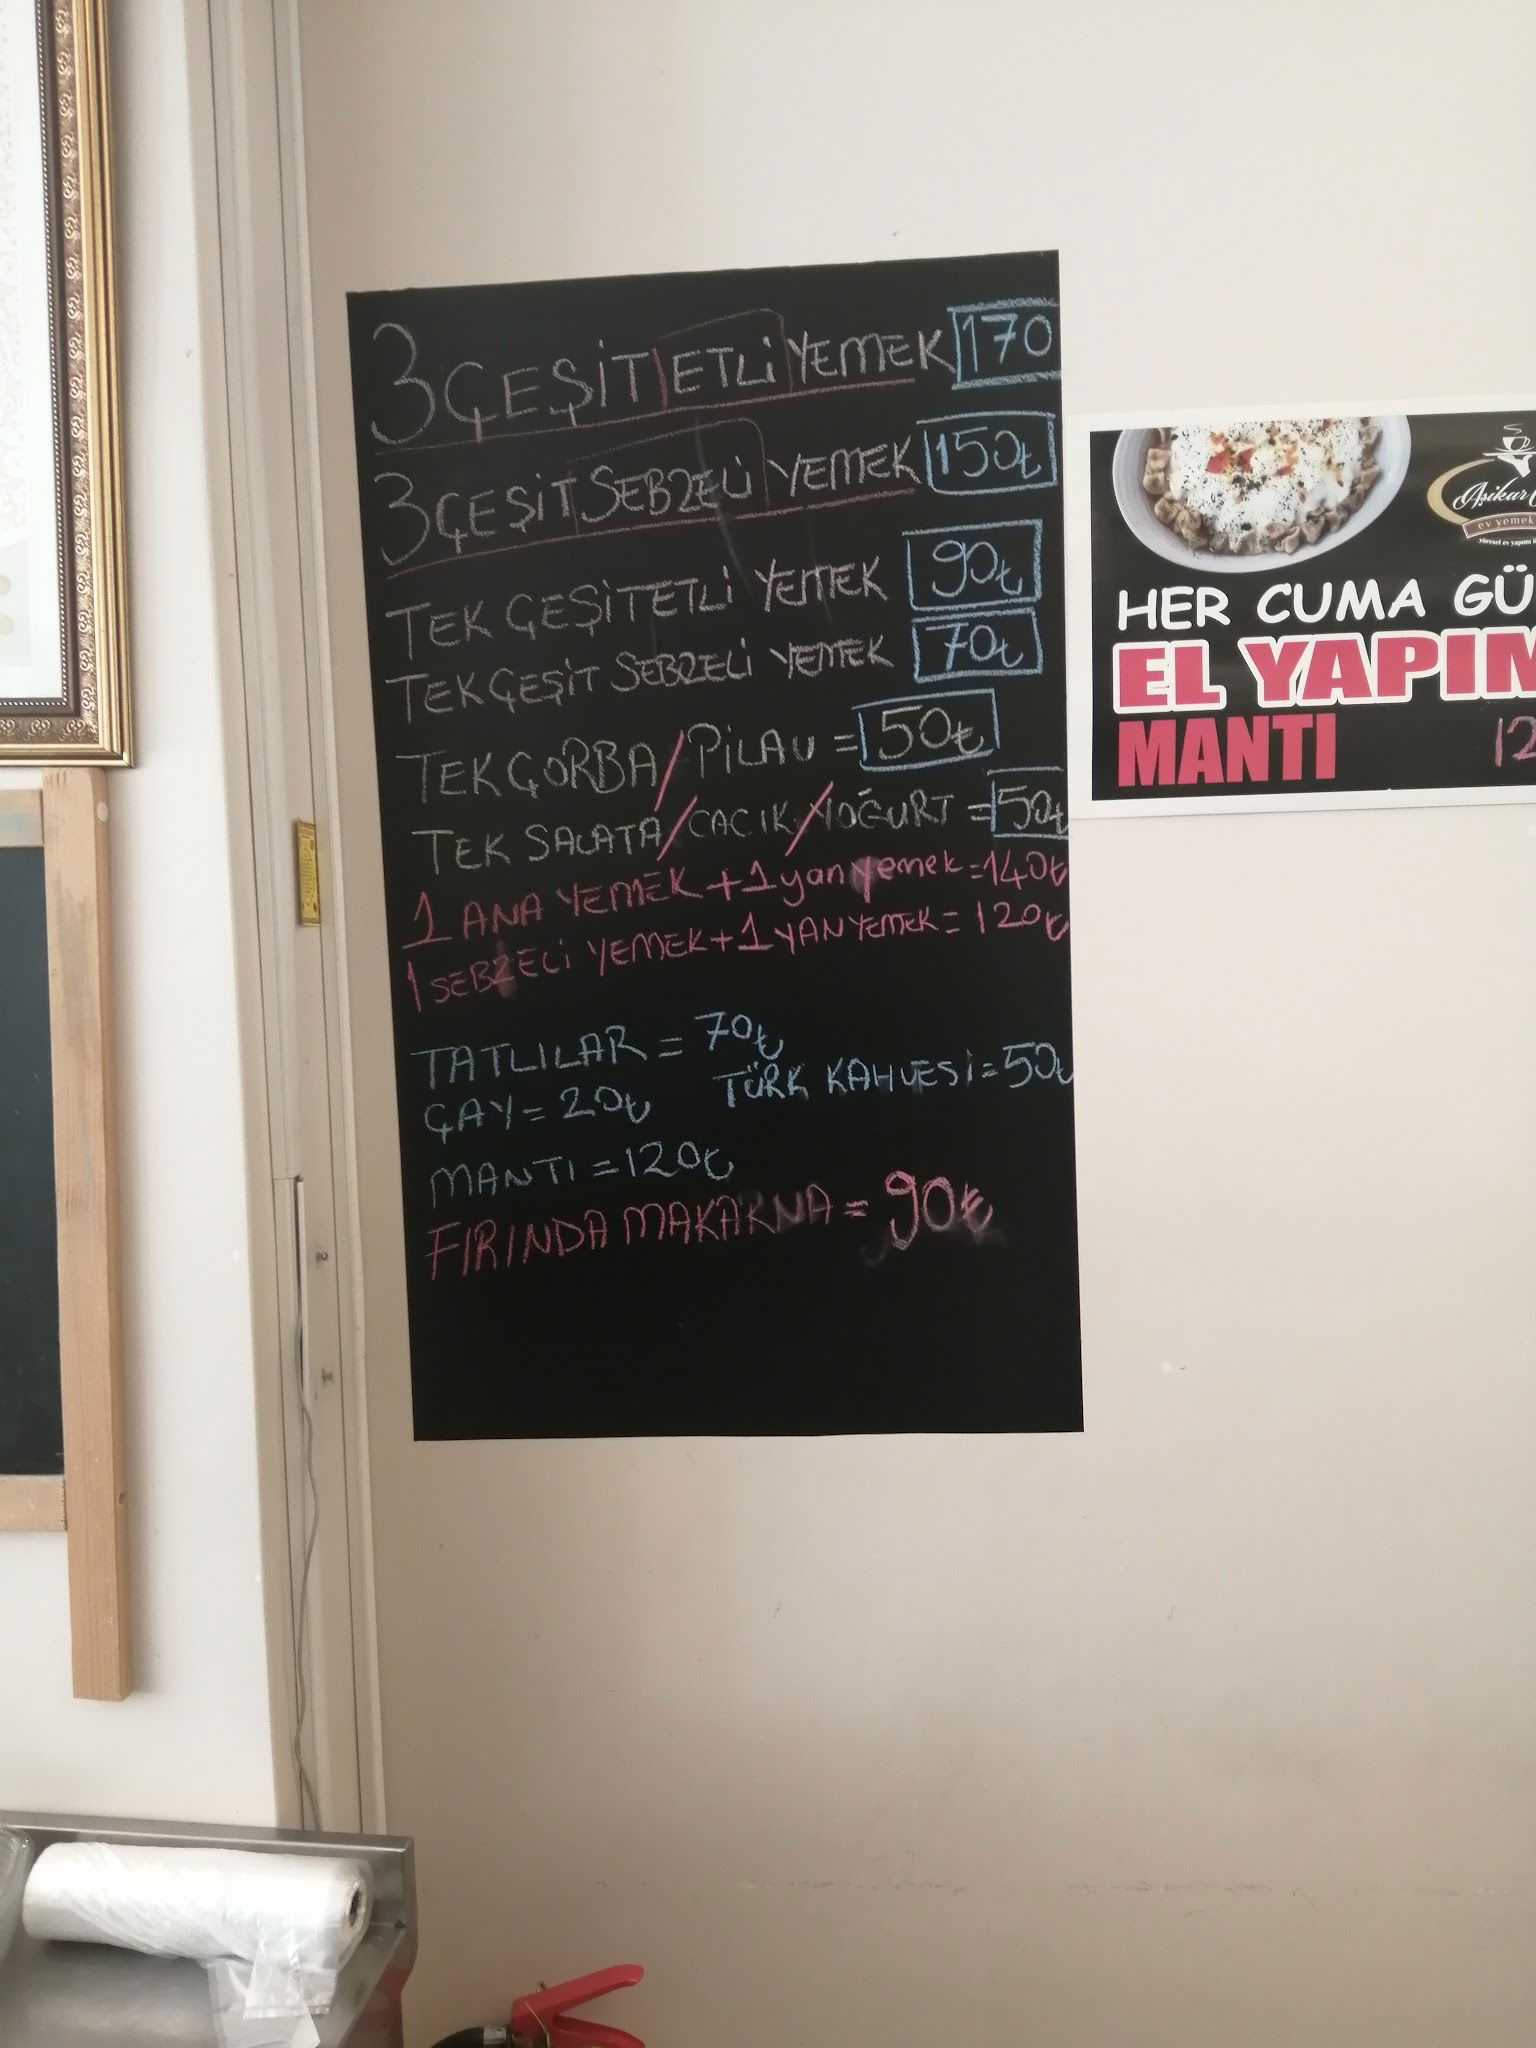 3 ÇEŞİT ETLİ YEMEK 170
3 ÇEŞİT SEBZELİ YEMEK 150₺
TEK ÇEŞİT ETLİ YEMEK 90₺
TEK ÇEŞİT SEBZELİ YEMEK 70₺
TEK ÇORBA/PİLAV = 50₺
TEK SALATA/CACIK/YOĞURT = 50₺
1 ANA YEMEK + 1 yan yemek = 140₺
1 SEBZELİ YEMEK + 1 YAN YEMEK = 120₺
TATLILAR = 70₺
ÇAY = 20₺ TÜRK KAHVESİ = 50₺
MANTI = 120₺
FIRINDA MAKARNA = 90₺
Aşikar
ev yemek
yöresel ev yapımı
HER CUMA GÜ
EL YAPIM
MANTI 12